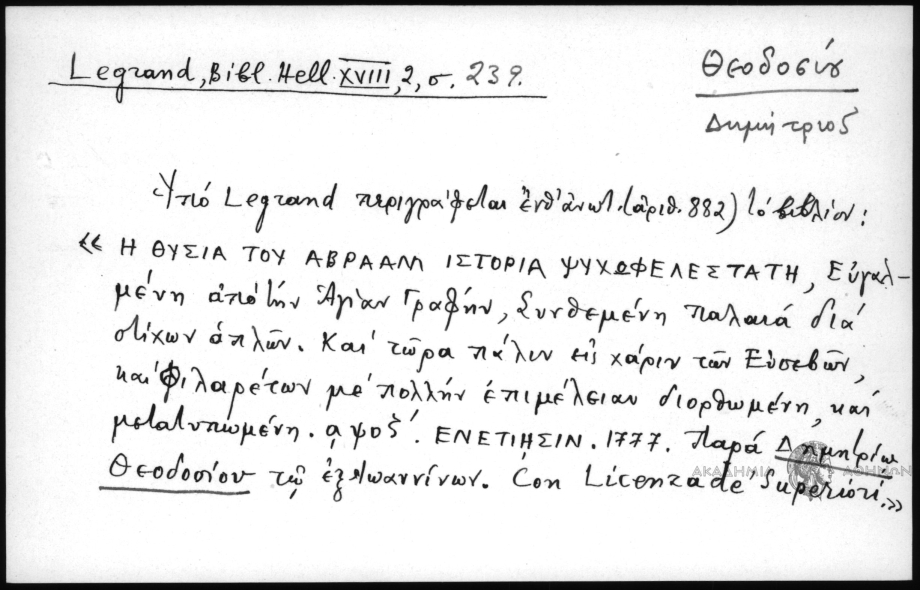 Legrand, Bibl. Hell. XVIII, 2, σ. 239.
Θεοδοσίου
Δημήτριος
Ὑπό Legrand περιγράφεται ἐνθ' ἀνωτ. (ἀριθ. 882) τό βιβλίον:
« Η ΘΥΣΙΑ ΤΟΥ ΑΒΡΑΑΜ ΙΣΤΟΡΙΑ ΨΥΧΩΦΕΛΕΣΤΑΤΗ, Εὐγαλ-
μένη ἀπό τήν Ἁγίαν Γραφήν, Συνθεμένη παλαιά διά
στίχων ἁπλῶν. Καί τῶρα πάλιν εἰς χάριν τῶν Εὐσεβῶν,
καί Φιλαρέτων μέ πολλήν ἐπιμέλειαν διορθωμένη, καί
μετατυπωμένη. αψοζ'. ΕΝΕΤΙΗΣΙΝ. 1777. Παρά Δημητρίω
Θεοδοσίου τῷ ἐξ Ἰωαννίνων. Con Licenza de' Superiori.»
ΑΚΑΔΗΜΙΑ ΑΘΗΝΩΝ